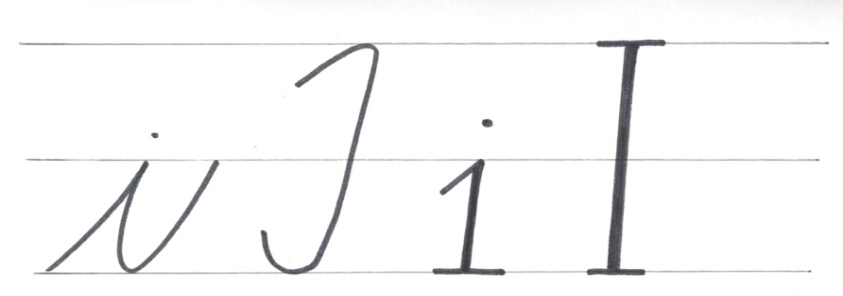 i I i I